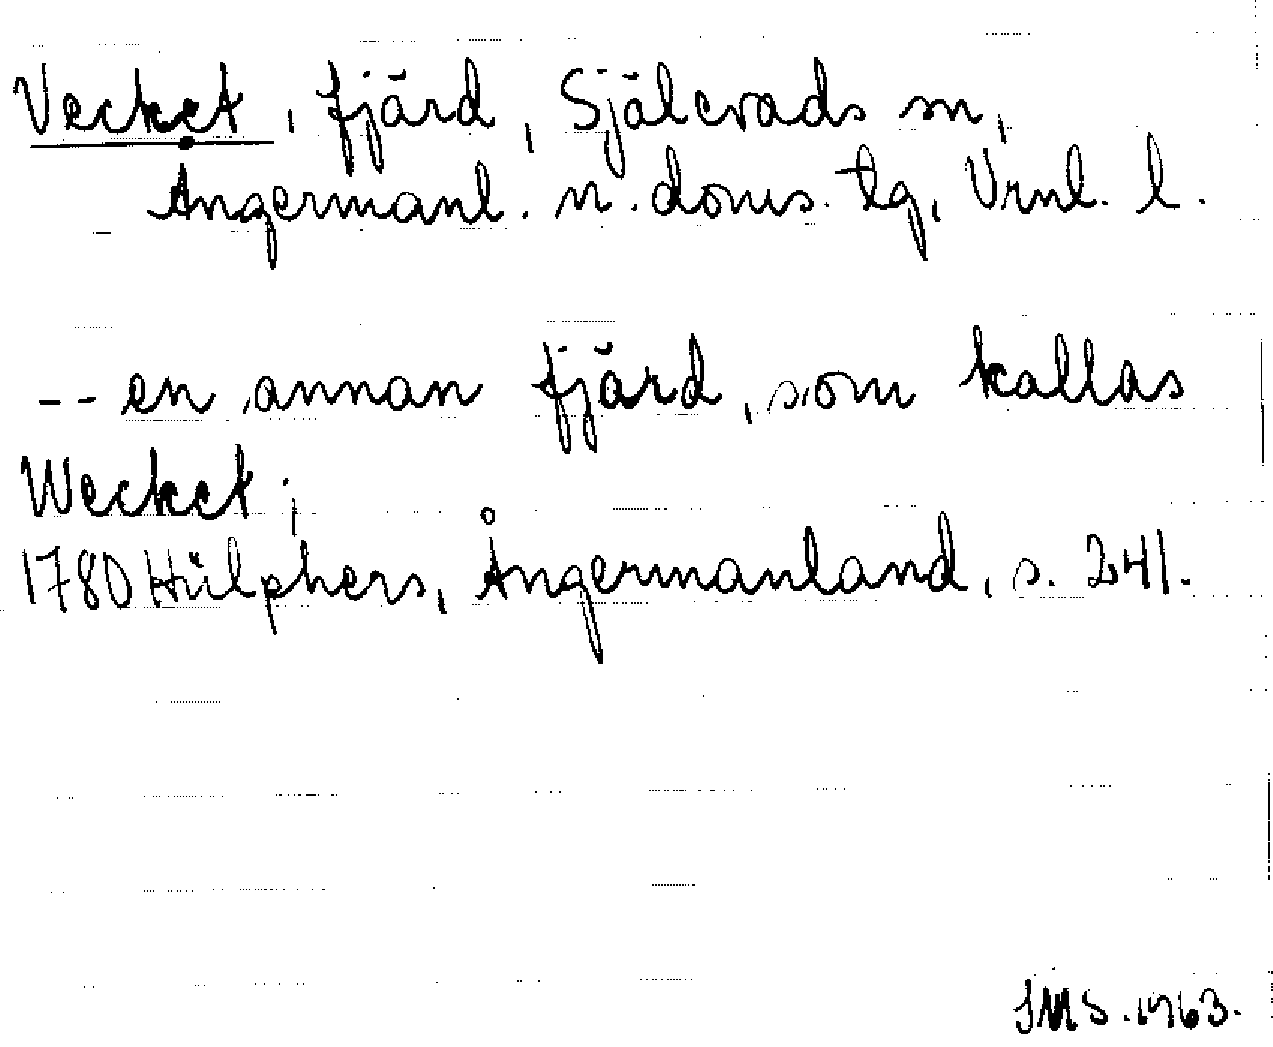 Vecket, fjärd, Själevads sn,
Ångermanl. n. doms. tg, Vrnl. l.
-- en annan fjärd, som kallas
Wecket;
1780 Hülphers, Ångermanland, s. 241.
SMS. 1963.